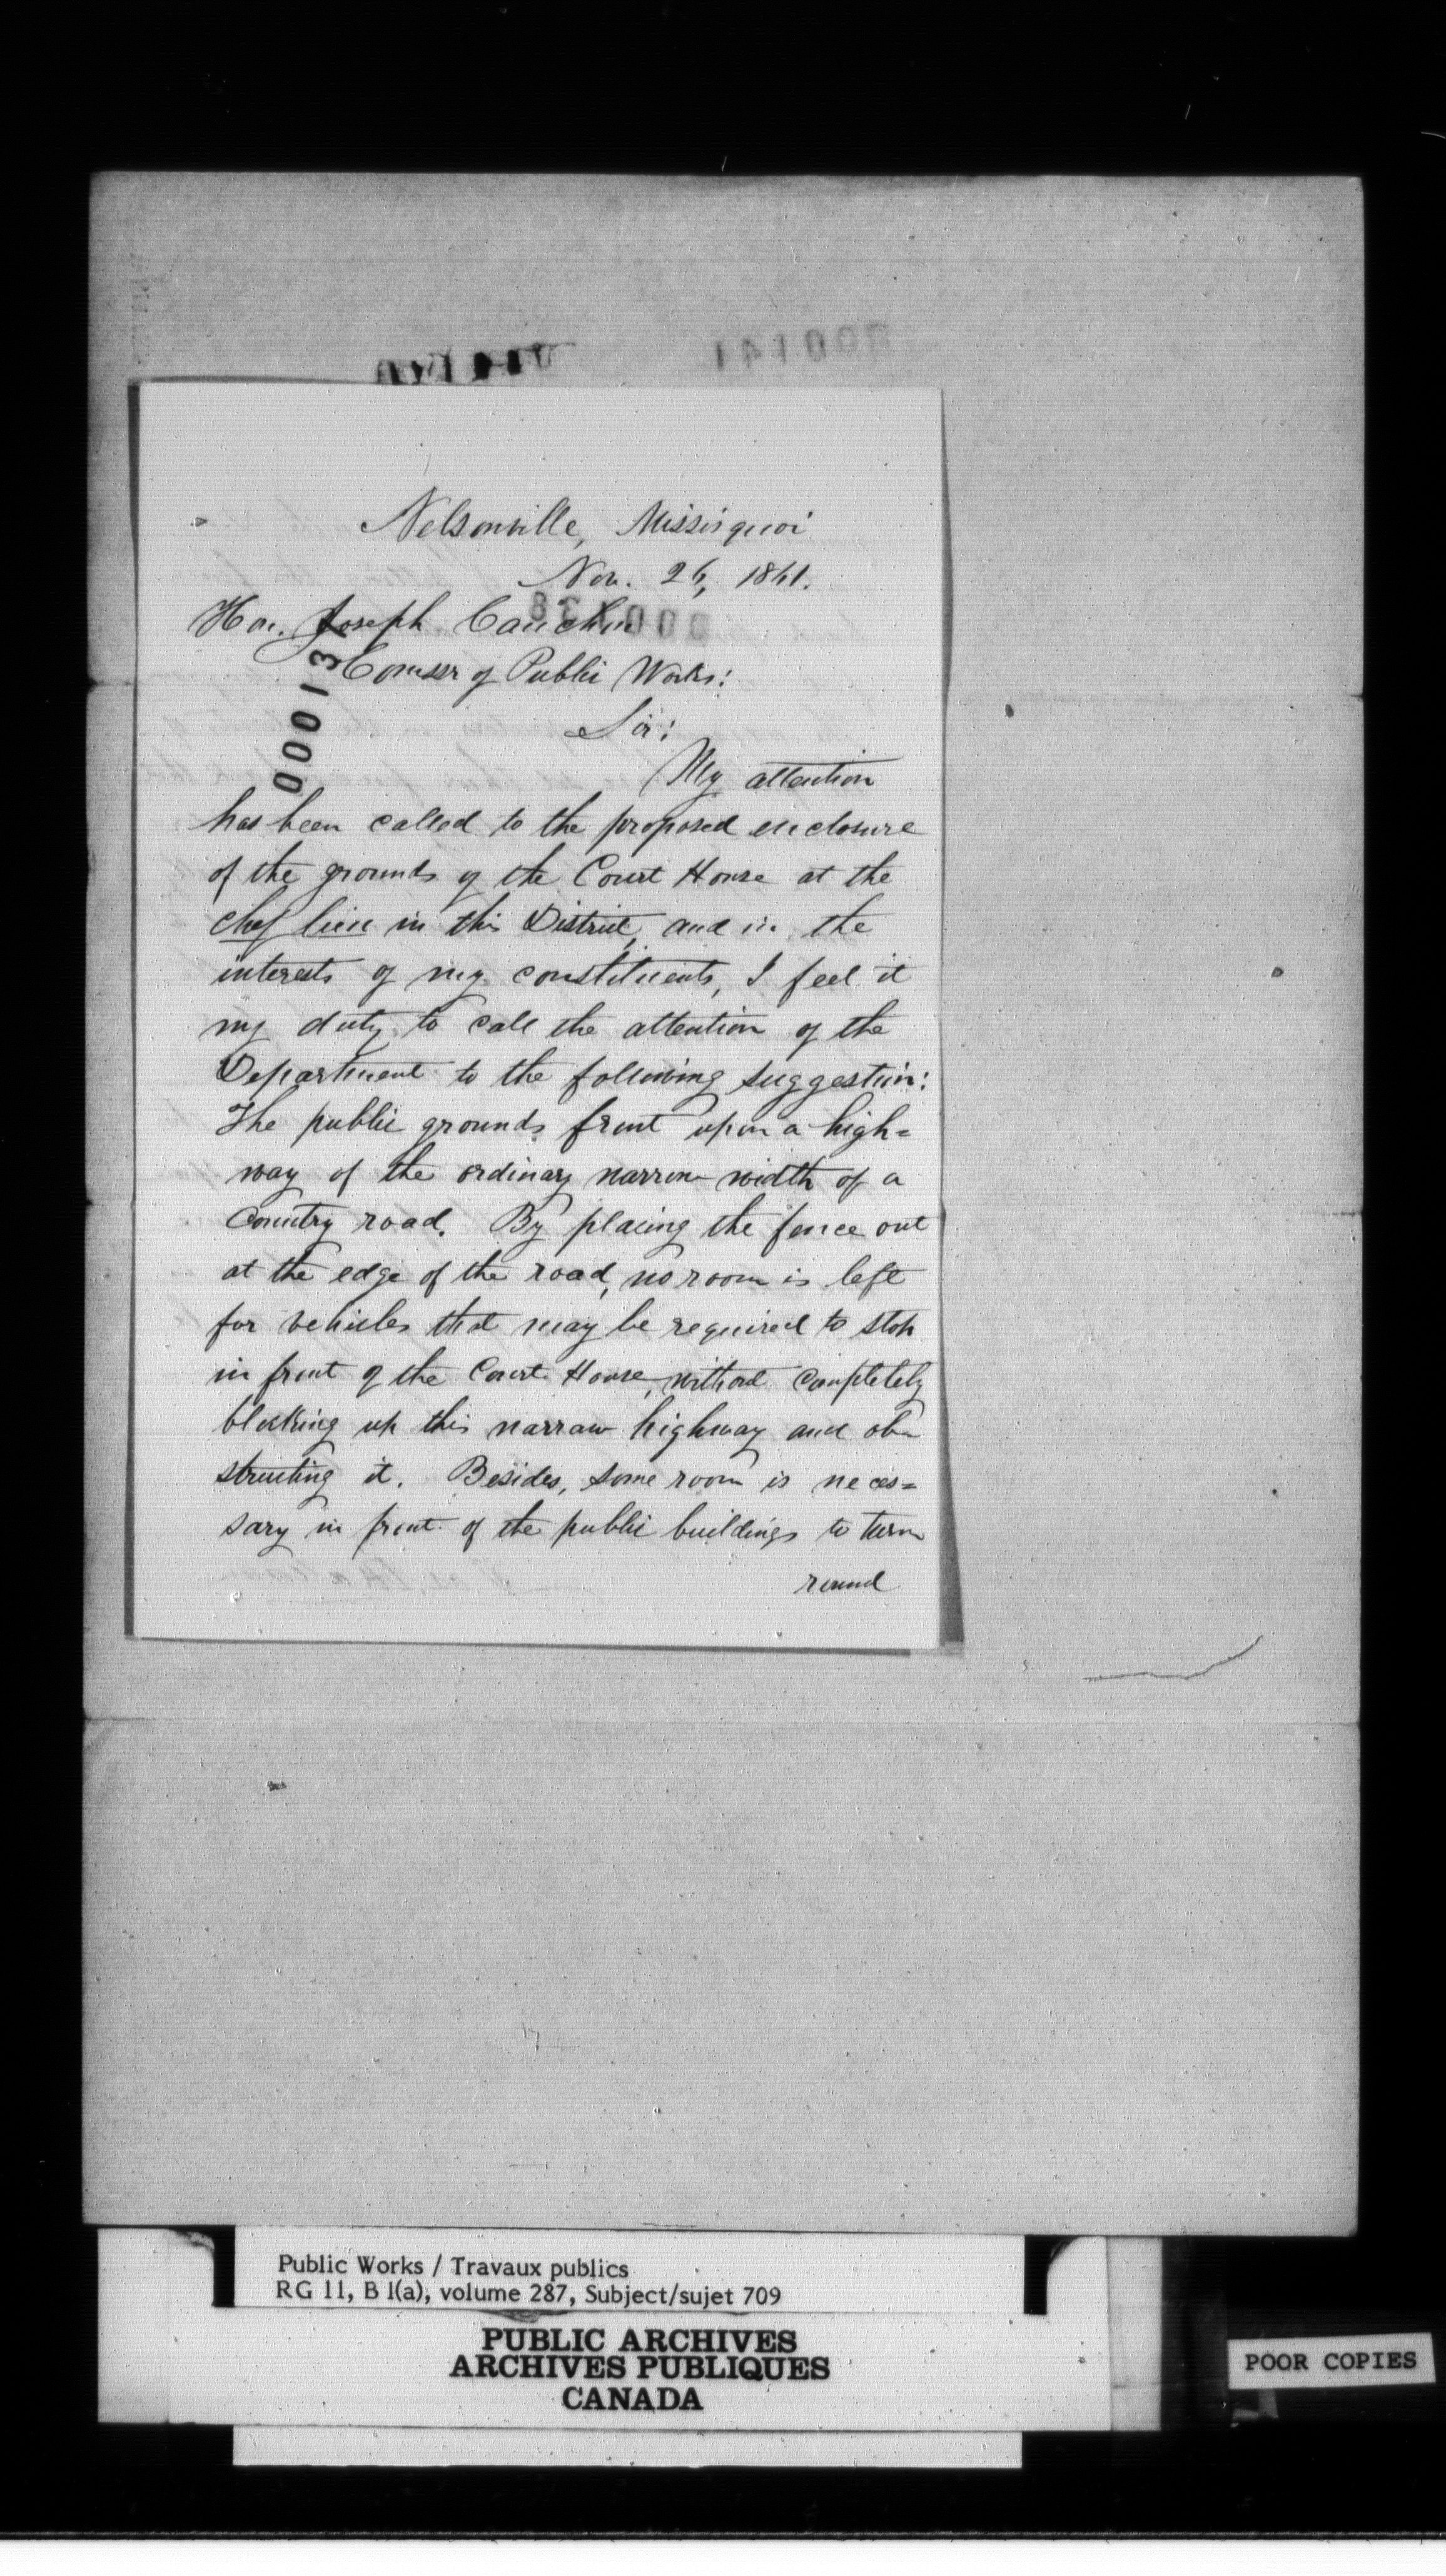 000141
Nelsonville, Missisquoi
Nov. 26, 1861.
Hon. Joseph Cauchon
000138
Comssr of Public Works:
00013
Sir:
My attention
has been called to the proposed enclosure
of the grounds of the Court House at the
chef lieu in this District, and in the
interests of my constituents, I feel it
my duty to call the attention of the
Department to the following suggestion:
The public grounds front upon a high=
way of the ordinary narrow width of a
Country road. By placing the fence out
at the edge of the road, no room is left
for vehicles that may be required to stop
in front of the Court House, without completely
blocking up this narrow highway and ob-
structing it. Besides, some room is neces=
sary in front of the public buildings to turn
round
Public Works / Travaux publics
RG 11, B 1(a), volume 287, Subject/sujet 709
PUBLIC ARCHIVES
ARCHIVES PUBLIQUES
CANADA
POOR COPIES